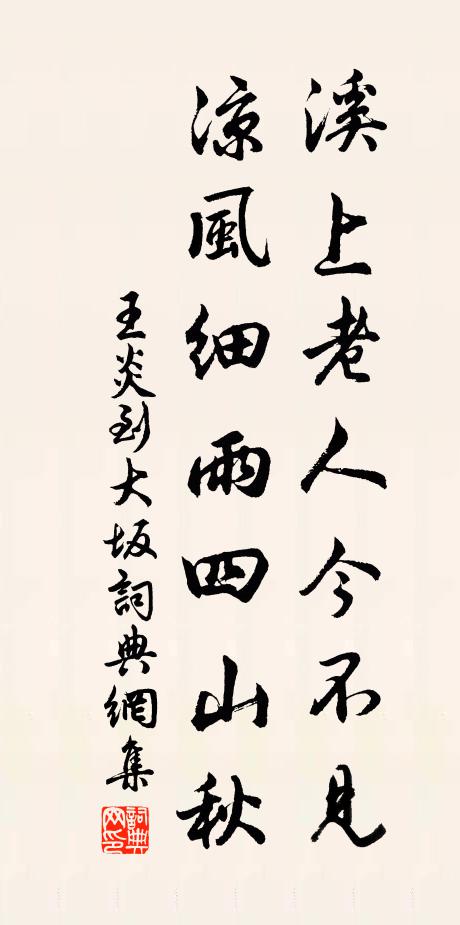 溪上老人今不見
涼風細雨四山秋
王炎到大坂詞典網集
詞典網印